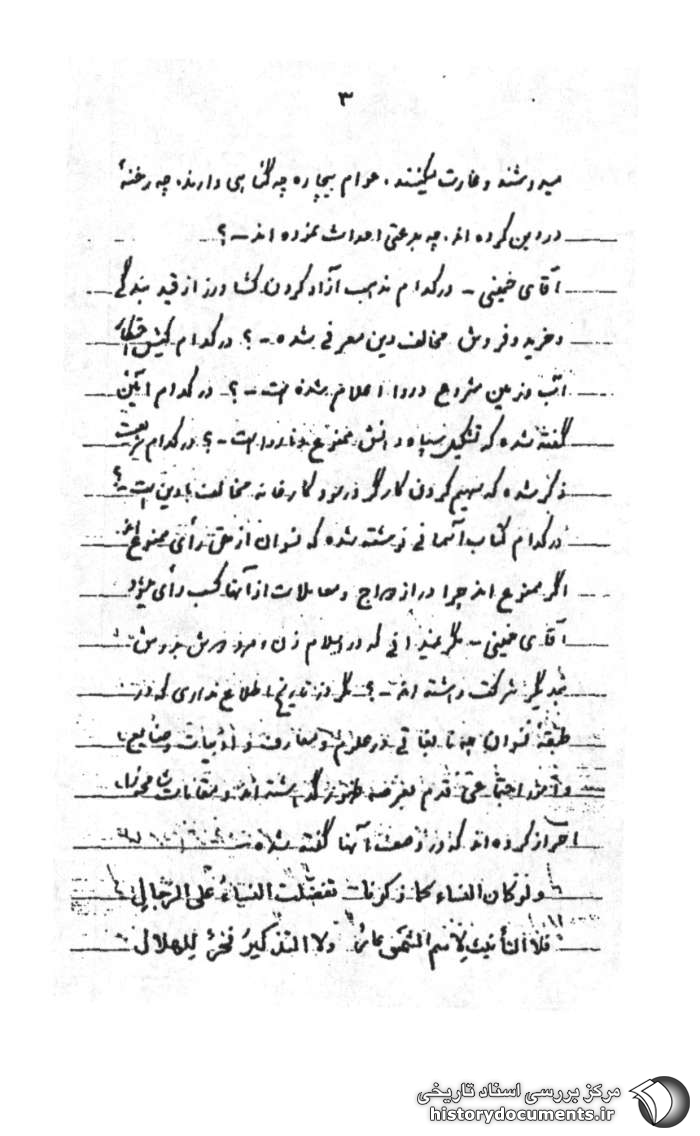 ۳
میدوشند و غارت میکنند. عوام بیچاره چه گناهی دارند. چه رخنهٔ
در دین کرده اند. چه بدعتی احداث نموده اند - ؟
آقای خمینی - در کدام مذهب آزاد کردن کشاورز از قید بندگی
و خرید و فروش مخالف دین معرفی شده - ؟ در کدام کیش
زمین مشروع و روا اعلام شده است - ؟ در کدام آئین
گفته شده که تشکیل سپاه دانش ممنوع و نارواست - ؟ در کدام شریعت
ذکر شده که سهیم کردن کارگر در سود کارخانه مخالف با دین است - ؟
در کدام کتاب آسمانی نوشته شده که نسوان از حق رأی ممنوع اند
اگر ممنوع اند چرا در ازدواج و معاملات از آنها کسب رأی میشود
آقای خمینی - مگر نمیدانی که در اسلام زن و مرد دوش بدوش
یکدیگر شرکت داشته اند - ؟ مگر در تاریخ اطلاع نداری که در
طبقهٔ نسوان چه نوابغی در علوم و معارف و ادبیات و صنایع
و امور اجتماعی قدم بعرصه ظهور گذاشته اند و مقامات
احراز کرده اند که در وصف آنها گفته شده
ولو کان النساء کما ذکرنا لفضّلت النساءُ علی الرجالِ
فلا التأنیث لاسم الشمس عارٌ ولا التذکیرُ فخرٌ للهلالِ
مرکز بررسی اسناد تاریخی
historydocuments.ir